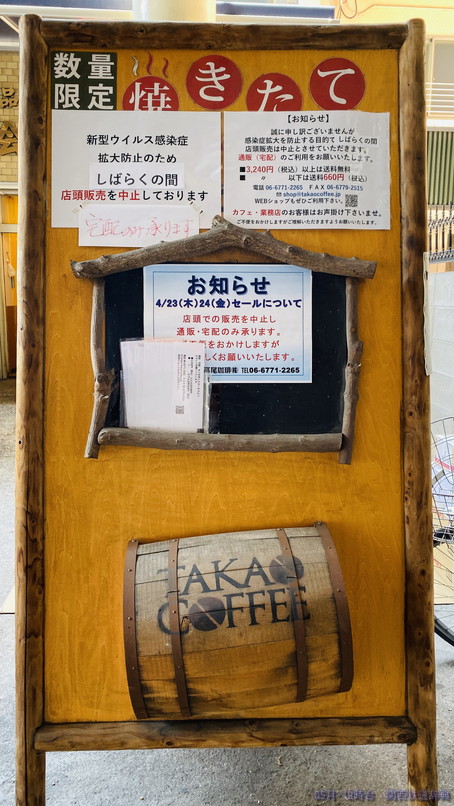 数量
限定
焼きたて
新型ウイルス感染症
拡大防止のため
しばらくの間
店頭販売を中止しております
宅配のみ承ります
【お知らせ】
誠に申し訳ございませんが
感染症拡大を防止する目的で しばらくの間
店頭販売は中止とさせていただきます。
通販（宅配）のご利用をお願いいたします。
■3,240円（税込）以上は送料無料
■ 〃 以下は送料660円（税込）
電話 06-6771-2265 ＦＡＸ 06-6779-2515
✉ shop@takaocoffee.jp
WEBショップもぜひご利用下さい。
カフェ・業務店のお客様はお声掛け下さいませ。
ご不便をおかけしますがご理解いただきますようお願いいたします。
お知らせ
4/23(木)24(金)セールについて
店頭での販売を中止し
通販・宅配のみ承ります。
便をおかけしますが
しくお願いいたします。
尾珈琲㈱ TEL06-6771-2265
TAKAO
COFFEE